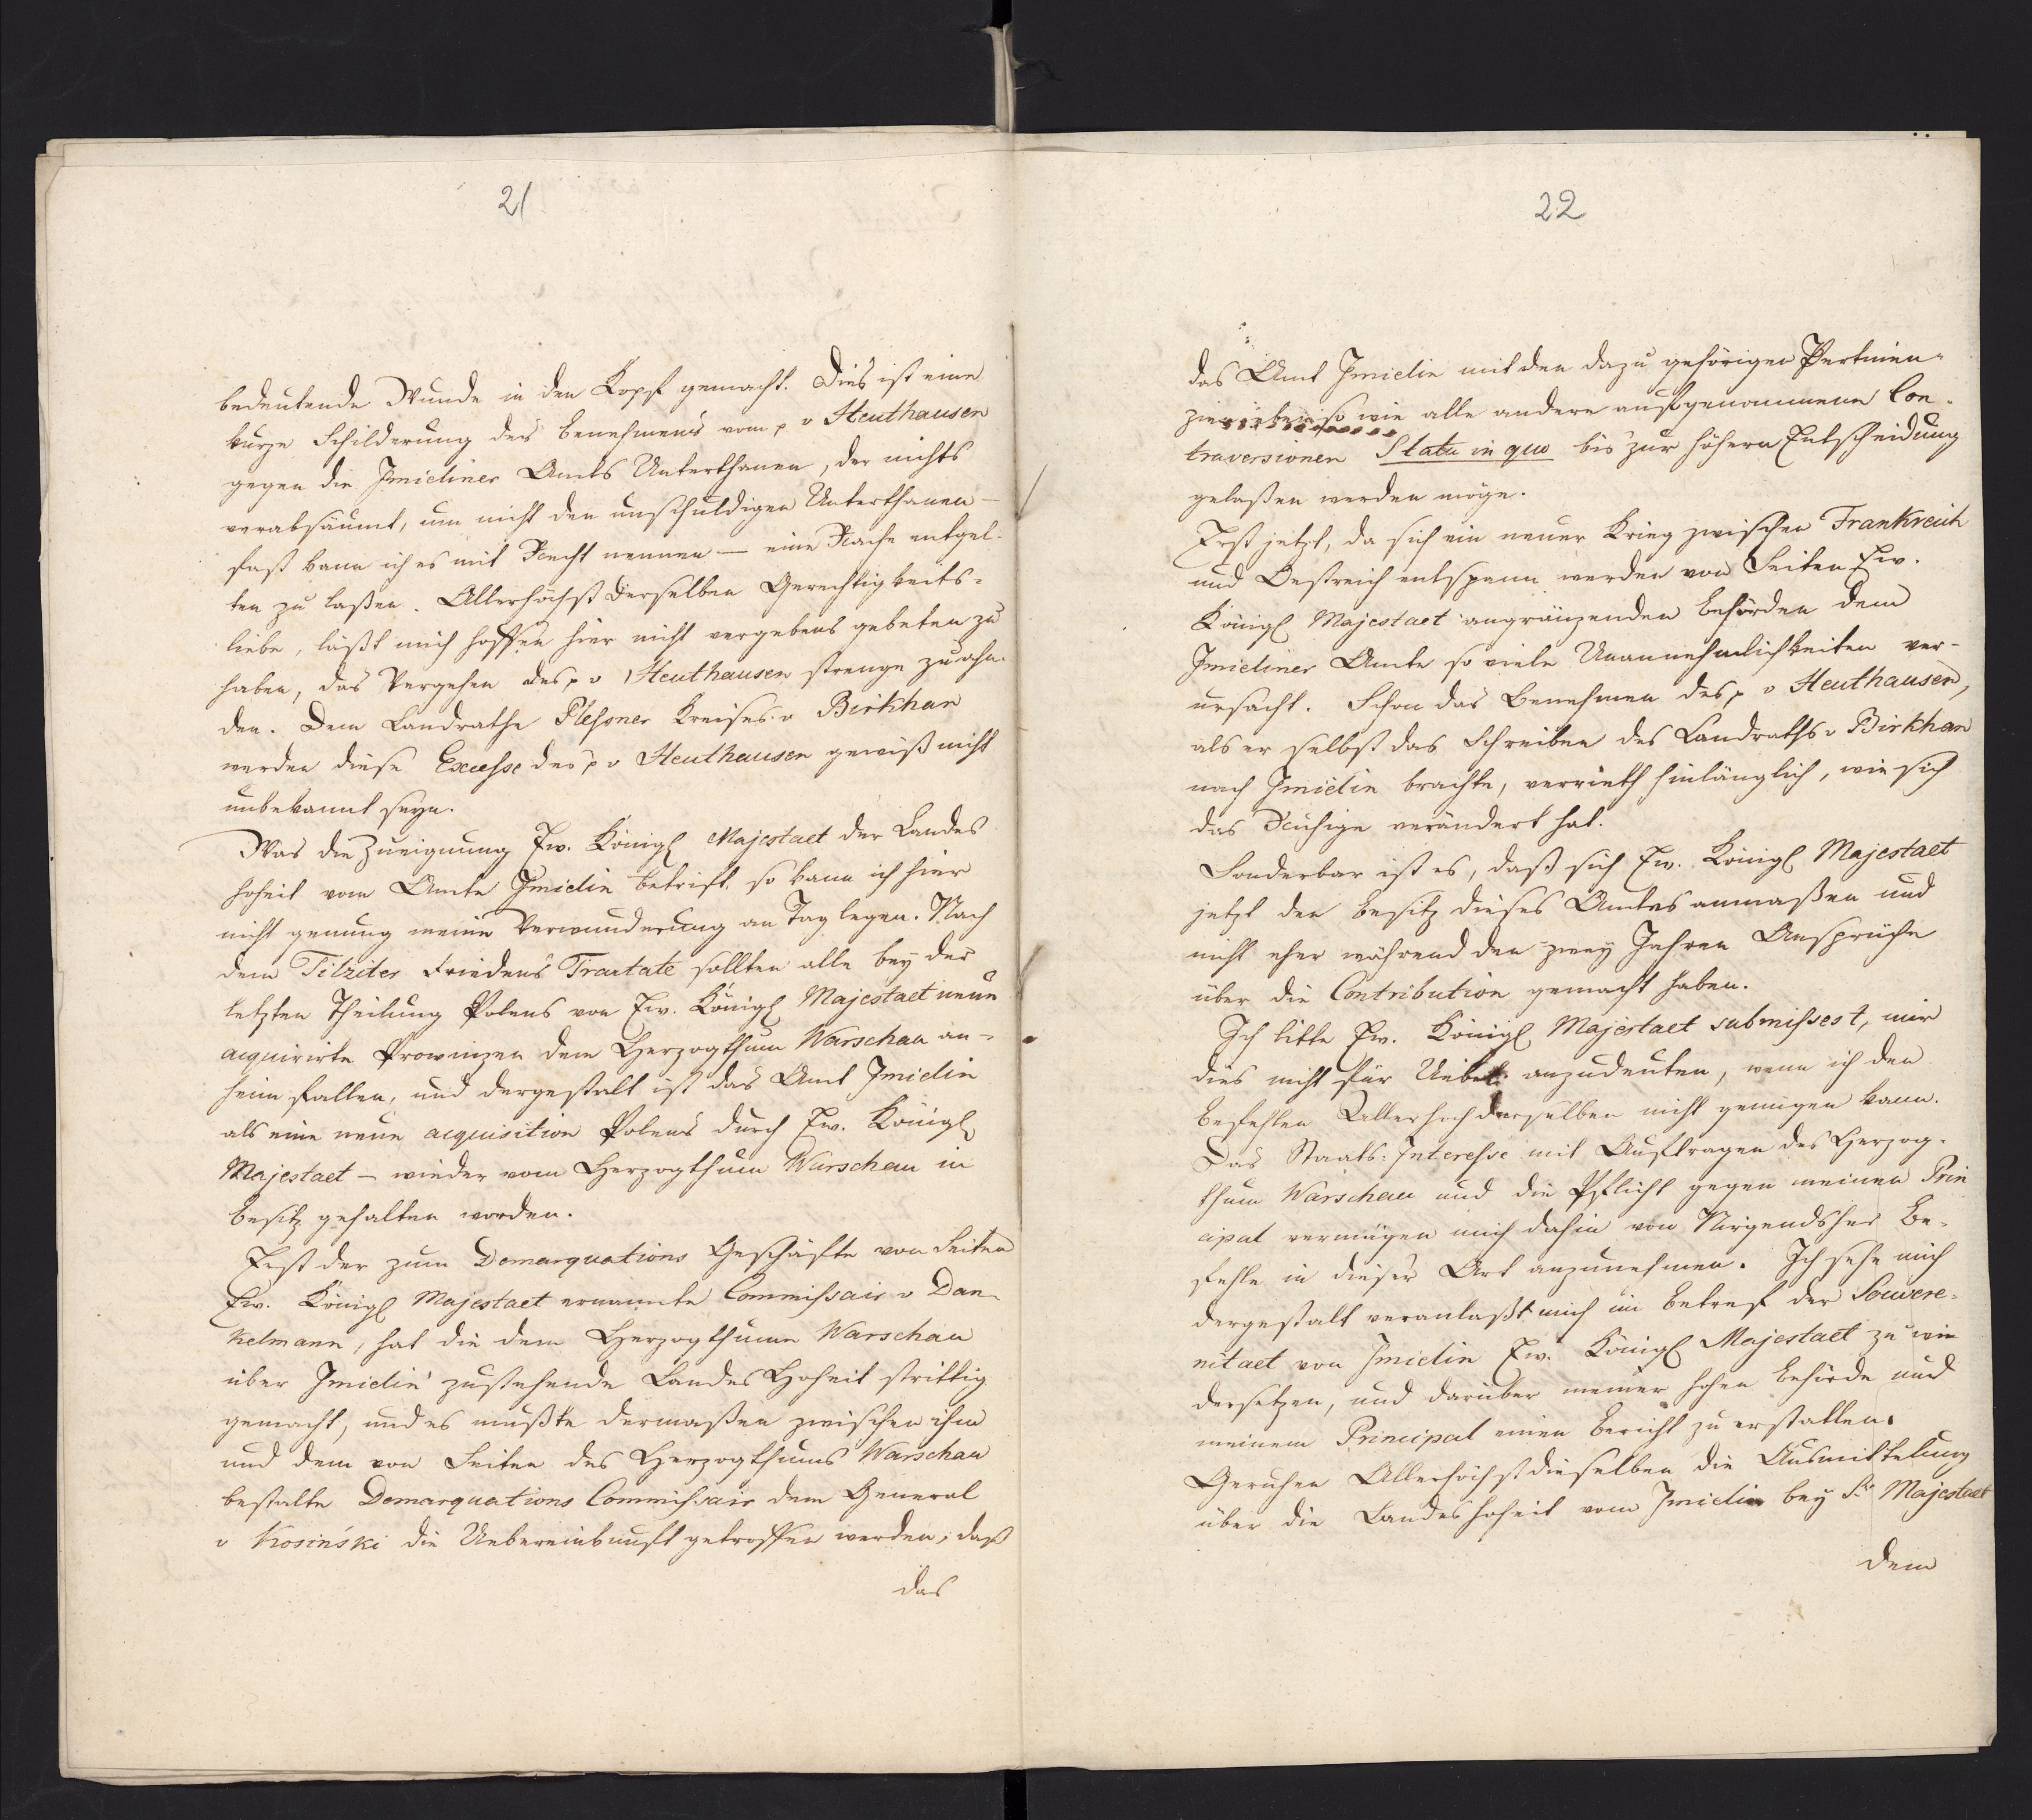 21
bedeutende Wunde in den Kopf gemacht. Dies ist eine
kurze Schilderung des Benehmens vom p v Heuthausen
gegen die Imieliner Amts Unterthanen, der nichts
verabsäumt, um nicht den unschuldigen Unterthanen –
fast kann ich es mit Recht nennen – eine Rache entgel-
ten zu laßen. Allerhöchst Derselben Gerechtigkeits-
liebe, läßt mich hoffen hier nicht vergebens gebeten zu
haben, das Vergehen des p v Heuthausen strenge zu ahn-
den. Dem Landrathe Pleßner Kreises v Birkhan
werden diese Excesse des p v Heuthausen gewiß nicht
unbekannt seyn.
Was die Zueignung Ew. Königl Majestaet der Landes
hoheit vom Amte Imielin betrift, so kann ich hier
nicht genung meine Verwunderung an Tag legen. Nach
dem Tilziter Friedens Tractate sollten alle bey der
letzten Theilung Polens von Ew. Königl Majestaet neue
acquirirte Provinzen dem Herzogthum Warschau an-
heim fallen, und dergestalt ist das Amt Imielin
als eine neue acquisition Polens durch Ew. Königl
Majestaet – wieder vom Herzogthum Warschau in
Besitz gehalten worden.
Erst der zum Demarquations Geschäfte von Seiten
Ew. Königl Majestaet ernannte Commissair v Dan-
kelmann, hat die dem Herzogthume Warschau
über Imielin zustehende Landes Hoheit strittig
gemacht, und es mußte dermaßen zwischen ihm
und dem von Seiten des Herzogthums Warschau
bestalte Demarquations Commissair dem General
v Kosinski die Uebereinkunft getroffen werden; daß
das
22
das Amt Imielin mit den dazu gehörigen Pertinen-
zien so wie alle andere aufgenommene Con-
traversionen Statu in quo bis zur höhern Entscheidung
gelaßen werden möge.
Erst jetzt, da sich ein neuer Krieg zwischen Frankreich
und Oestreich entspann werden von Seiten Ew.
Königl Majestaet angränzenden Behörden dem
Imieliner Amte so viele Unannehmlichkeiten ver-
ursacht. Schon das Benehmen des p v Heuthausen,
als er selbst das Schreiben des Landraths v Birkhan
nach Imielin brachte, verrieth hinlänglich, wie sich
das Ruhige verändert hat.
Sonderbar ist es, daß sich Ew. Königl Majestaet
jetzt den Besitz dieses Amtes anmaßen und
nicht eher während den zwey Jahren Ansprüche
über die Contribution gemacht haben.
Ich bitte Ew. Königl Majestaet submissest, mir
dies nicht für Uebel anzudeuten, wenn ich den
Befehlen Allerhoch derselben nicht genügen kann.
Das Staats-Interesse mit Auftragen des Herzog-
thum Warschau und die Pflicht gegen meinen Prin
cipal vermögen mich dahin von Nirgendsher Be-
fehle in dieser Art anzunehmen. Ich sehe mich
dergestalt veranlaßt mich in Betref der Souvere-
nitaet von Imielin Ew. Königl Majestaet zu wie
dersetzen, und darüber meiner hohen Behörde und
meinem Principal einen Bericht zu erstatten.
Geruhen Allerhöchst dieselben die Ausmittelung
über die Landeshoheit vom Imielin bey Sr Majestaet
dem